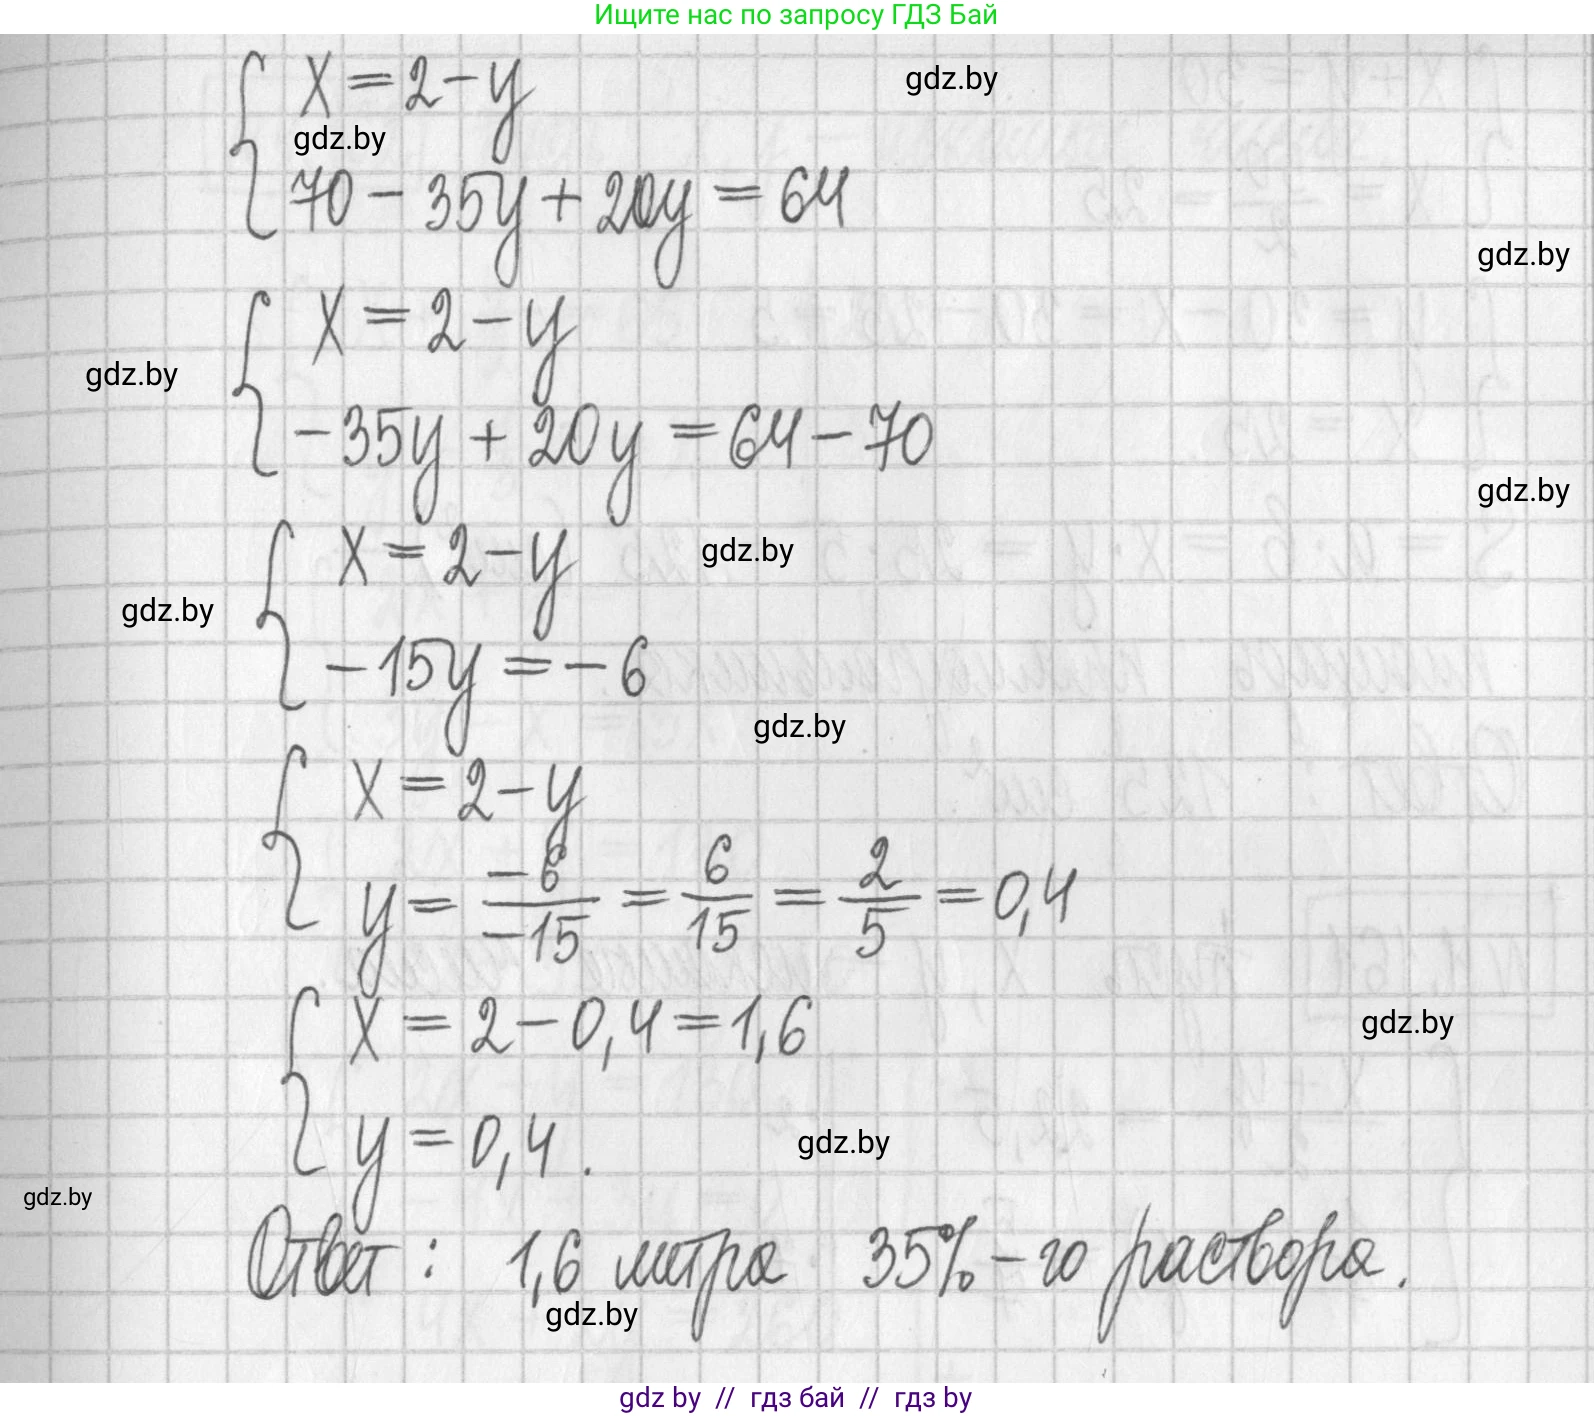 Ищите нас по запросу ГДЗ Бай
x = 2 - y
gdz.by
gdz.by
70 - 35y + 20y = 64
gdz.by
x = 2 - y
gdz.by
-35y + 20y = 64 - 70
gdz.by
x = 2 - y
gdz.by
gdz.by
-15y = -6
gdz.by
x = 2 - y
y = -6/-15 = 6/15 = 2/5 = 0,4
x = 2 - 0,4 = 1,6
gdz.by
y = 0,4.
gdz.by
gdz.by
Ответ: 1,6 литра 35%-го раствора.
gdz.by
gdz by // гдз бай // гдз by